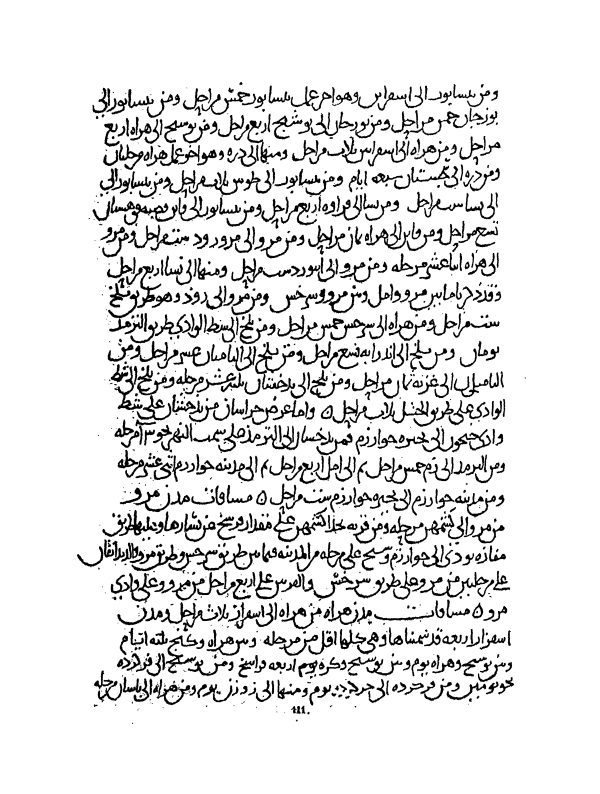 ومن نيسابور الى اسفراين وهو اخر عمل نيسابور خمس مراحل ومن نيسابور الى
بوزجان خمس مراحل ومن بوزجان الى بوشنج اربع مراحل ومن بوسنج الى هراه اربع
مراحل ومن هراه الى اسفزار ثلاث مراحل ومنها الى دره وهو اخر عمل هراه مرحلتان
ومن دره الى سجستان سبعه ايام ومن نيسابور الى طوس ثلاث مراحل ومن نيسابور الى
الى نسا ست مراحل ومن نسا الى فراوه اربع مراحل ومن نيسابور الى قاين قصبه قوهستان
تسع مراحل ومن قاين الى هراه ثمان مراحل ومن مرو الى مرو رود ست مراحل ومن مرو
الى هراه اثنا عشر مرحله ومن مرو الى ابيورد ست مراحل ومنها الى نسا اربع مراحل
وقد ذكرنا ما بين مرو وامل وبين مرو وسرخس ومن مرو الى رود وهو طريق بلخ
ست مراحل ومن هراه الى سرخس خمس مراحل ومن بلخ الى شط الوادي طريق الترمذ
يومان ومن بلخ الى اندرابه تسع مراحل ومن بلخ الى الباميان عشر مراحل ومن
الباميان الى غزنه ثمان مراحل ومن بلخ الى بدخشان ثلثه عشر مرحله ومن بلخ الى شط
الوادي على طريق الختل ثلاث مراحل ۵ واما عرض خراسان من بدخشان على شط
وادي جيحون الى بحيره خوارزم فمن بدخشان الى الترمذ على سمت النهر نحو مرحله
ومن الترمذ الى زم خمس مراحل ثم الى امل اربع مراحل ثم الى مدينه خوارزم اثنى عشر مرحله
ومن مدينه خوارزم الى بحيره خوارزم ست مراحل ۵ مسافات مدن مرو
من مرو الى كشميهن مرحله ومن قريه بحذا كشميهن على مقدار فرسخ من يسارها وعليها طريق
مفازه يودي الى خوارزم وسنج على مرحله من المدينه فيما بين طريق سرخس وطريق مرو
على مرحلتين من مرو على طريق سرخس والقرينين على اربع مراحل من مرو وعلى وادي
مرو ۵ مسافات مدن هراه من هراه الى اسفزار ثلاث مراحل ومدن
اسفزار اربعه قد سمناها وهي كلها اقل من مرحله ومن هراه وكنج ثلثه ايام
ومن بوسنج وهراه يوم ومن بوسنج وكره يوم اربعه فراسخ ومن بوسنج الى فركرده
نحو يومين ومن فركرده الى خركرد يوم ومنها الى زوزن يوم ومن هراه الى باسان مرحله
111